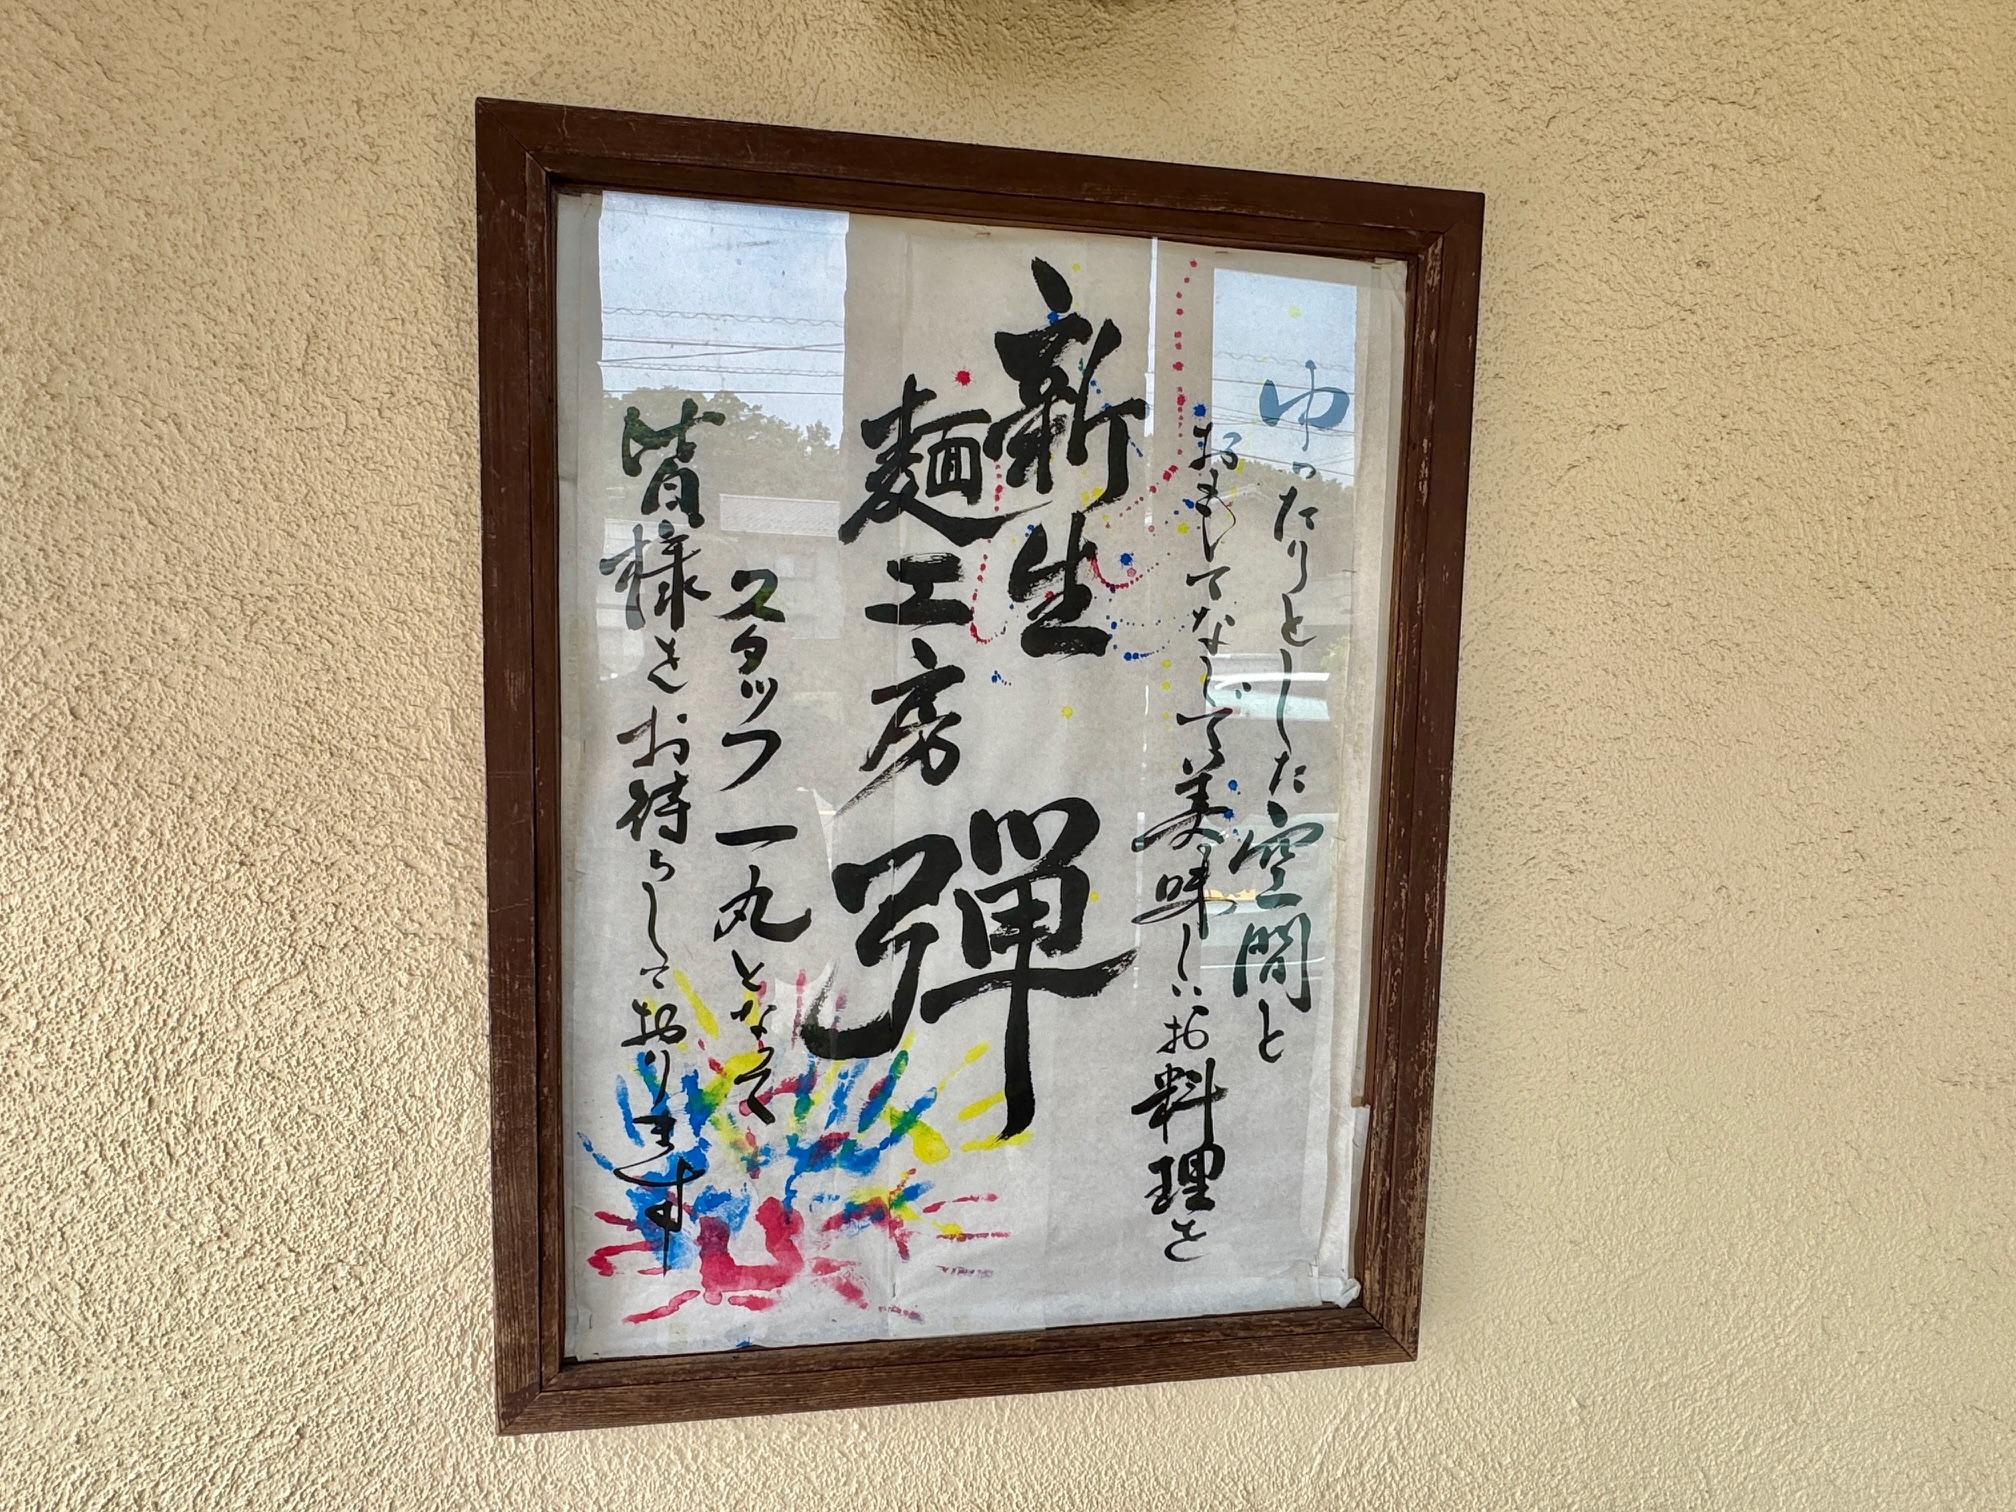 ゆったりとした空間と
おもてなしで美味しいお料理を
新生
麺工房
彈
スタッフ一丸となって
皆様をお待ちしております